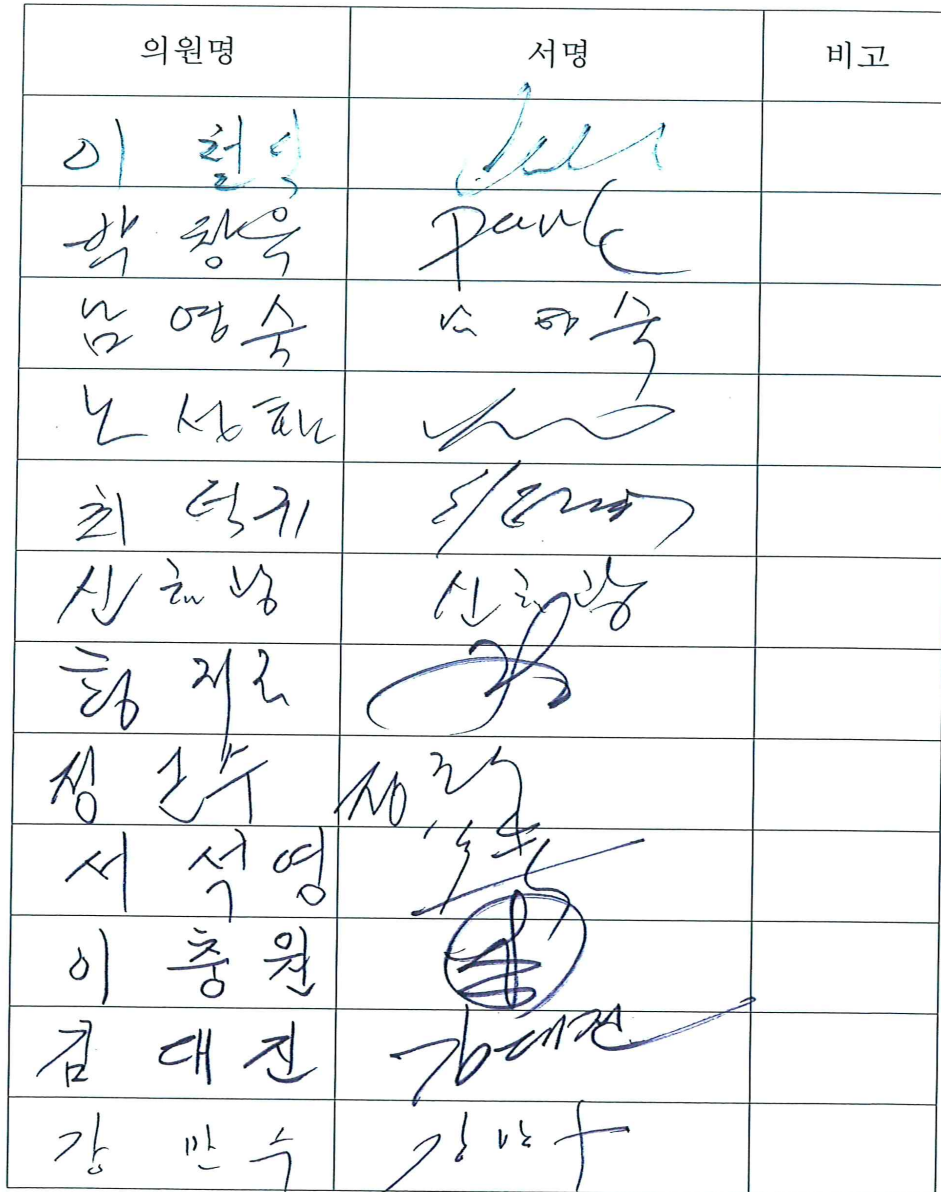 의원명 서명 비고
이 철식
박 창욱 Park
남 영숙 남영숙
노 성환
최 덕규
신효광 신효광
황 재철
정 근수 정근수
서 석영
이 충원
김 대진 김대진
강 만수 강만수